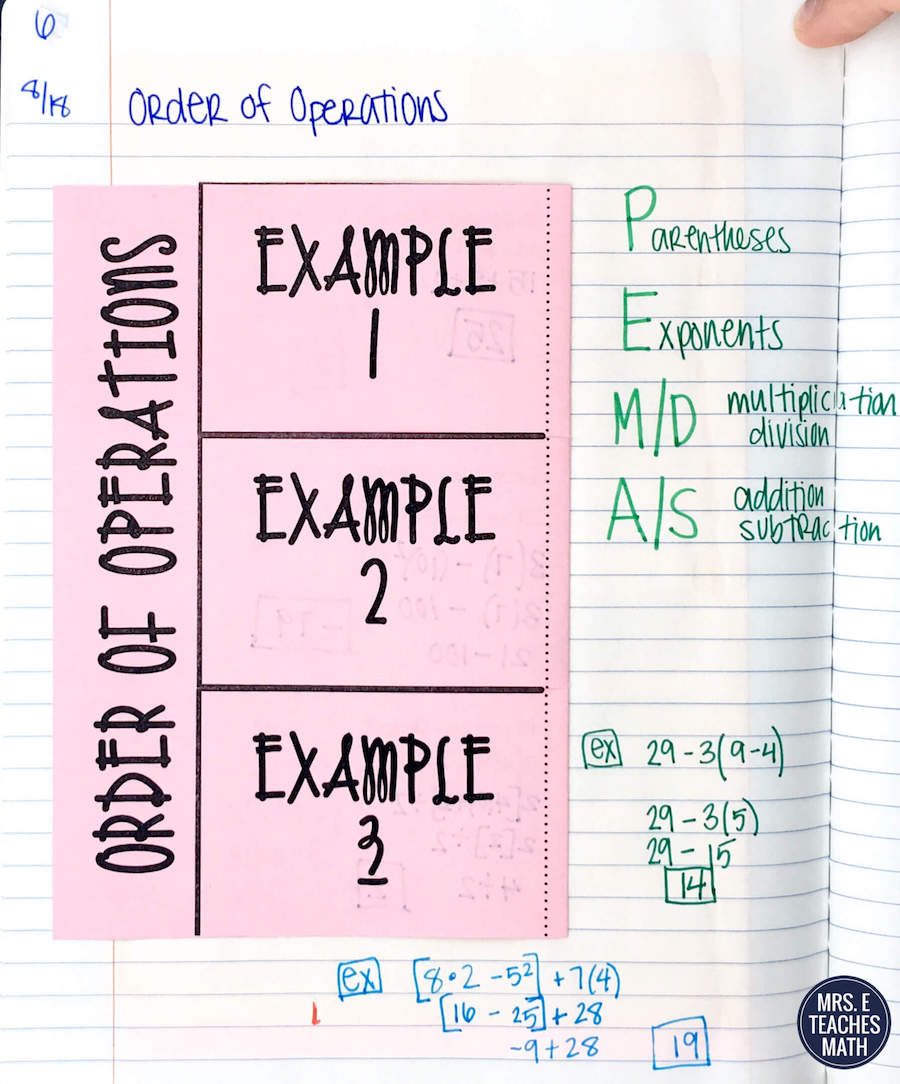 6
8/18
Order of Operations
ORDER OF OPERATIONS
EXAMPLE
1
EXAMPLE
2
EXAMPLE
3
Parentheses
Exponents
M/D multiplication
division
A/S addition
subtraction
ex 29 - 3(9-4)
29 - 3(5)
29 - 15
14
ex [8•2 - 5²] + 7(4)
[16 - 25] + 28
-9 + 28
19
MRS. E
TEACHES
MATH